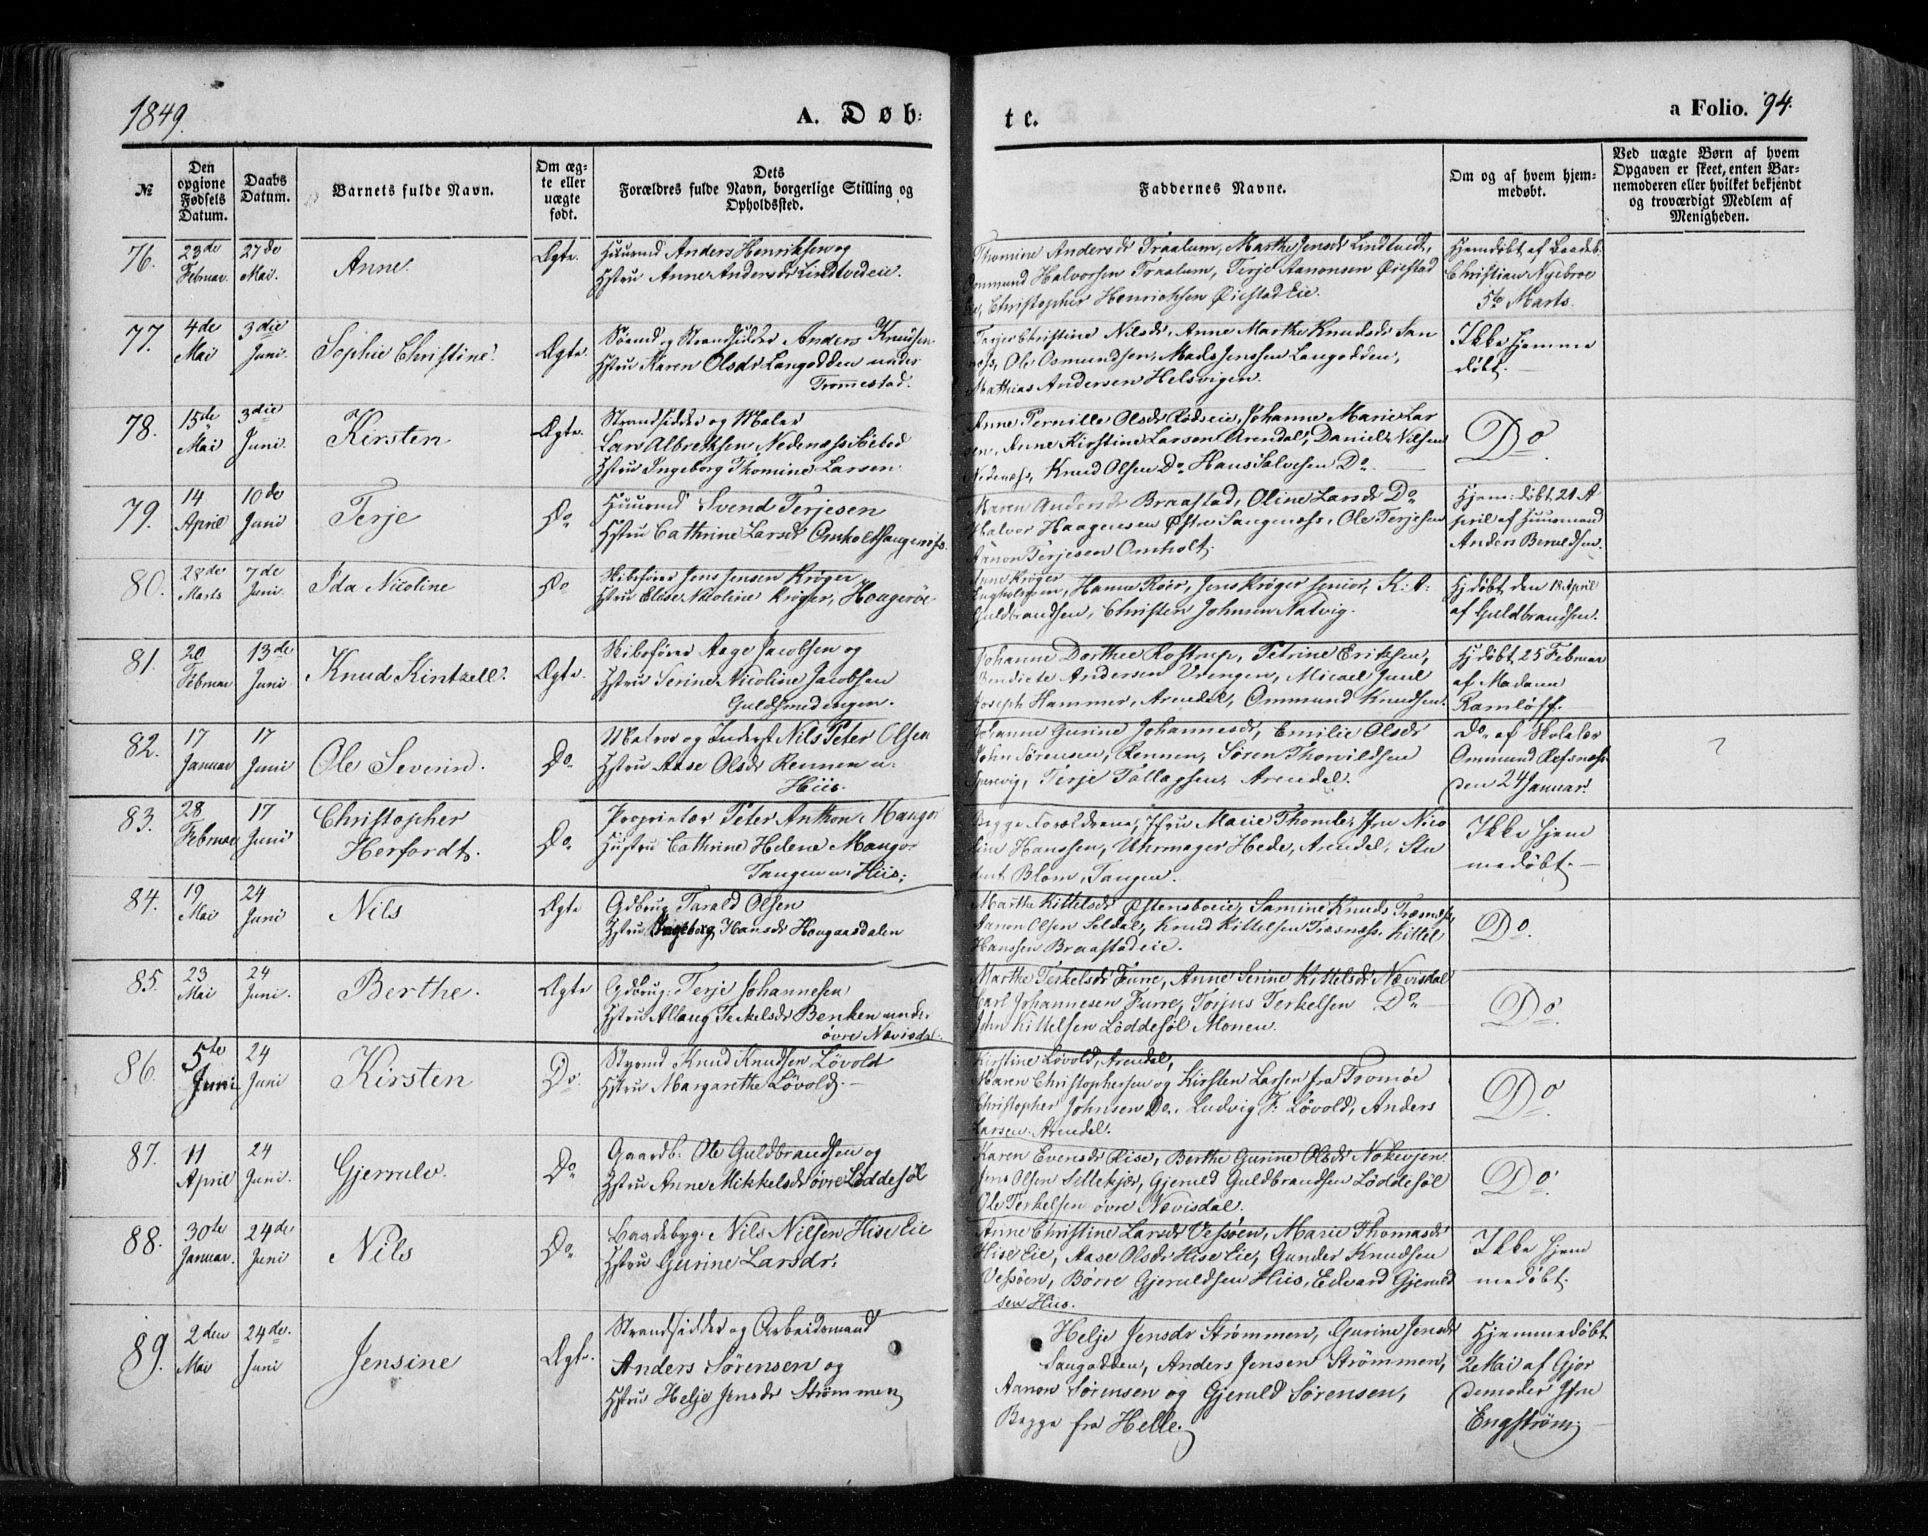 1849.
A. Døb:
te.
a Folio. 94.
№
Den opgivne Fødsels Datum.
Daabs Datum.
Barnets fulde Navn.
Om ægte eller uægte født.
Dets Forældres fulde Navn, borgerlige Stilling og Opholdssted.
Faddernes Navne.
Om og af hvem hjemmedøbt.
Ved uægte Børn af hvem Opgaven er skeet, enten Barnemoderen eller hvilket bekjendt og troværdigt Medlem af Menigheden.
76. 23de Februar. 27de Mai. Anne. Ægte.
Huusmd Anders Henriksen og
Hstru Anne Andersdr Lindtvedeie.
Thomine Andersdr Traalum, Marthe Jensdr Lindtvedt,
Ommund Halvorsen Traalum, Terje Aanonsen Øiestad
Christopher Henrichsen Øiestad Eie.
Hjemdøbt af
Christian Nyebroe
5te Marts.
77. 4de Mai 3die Juni. Sophie Christine. Ægte.
Sømd og Strandsidder Anders Knudsen
Hstru Karen Olsdr Langodden under
Tromestad.
Christine Nilsdr, Anne Marthe Knudsdr San
næss, Ole Osmundsen, Mads Jenssen Langodden,
Mathias Andersen Helsvigen.
Ikke hjemme
døbt.
78. 15de Mai 3die Juni. Kirsten Ægte.
Strandsidder og Maler
Lars Albrethsen Nedenæss
Hstru Ingeborg Thomine Larsen.
Anne Pernille Olsdr Rødseie, Johanne Marie Lar
sen, Anne Kirstine Larsen Arendal, Daniel Nilsen
Nedenæs, Knud Olsen Do. Hans Salvesen Do
Do
79. 14 April 10de Juni Terje Do
Huusmd Svend Terjesen
Hstru Cathrine Larsdr Omholt
Maren Andersdr Braastad, Oline Larsdr Do
Halvor Haagensen Østre Sangenæss, Ole Terjesen
Aanon Terjesen Omholt.
Hjem: døbt 21 A
pril af Huusmand
Anders Beruldsen.
80. 28de Marts 7de Juni. Ida Nicoline Do
Skibsfører Jens Jensen Krøger
Hstru Elise Nicoline Krøger, Hougerøe
Anne Krøger
Hanne Roër, Jens Krøger senior, K. A.
Guldbrandsen, Christen Johnsen Natvig.
Hj døbt den 18 April
af Guldbrandsen.
81. 20 Februar 13de Juni Knud Kintzell. Ægte.
Skibsfører Aage Jacobsen og
Hstru Serine Nicoline Jacobsen
Guldsmedengen.
Johanne Dorthee Rostrup, Petrine Eriksen,
Bendicte Andersen Vrengen, Micael Juul
Joseph Hammer, Arendal, Ommund Knudsen.
Hj døbt 25 Februar
af Madame
Ramløff.
82. 17 Januar 17 Juni Ole Severin. Do
Matros og Inderst Nils Peter Olsen
Hstru Aase Olsdr Rennen u.
Hiis.
Johanne Gurine Johannesdr, Emilie Olsdr
John Sørensen, Rennen, Søren Thorvildsen
Terje Tallagsen, Arendal.
Do af Skolelær
Ommund Refsnæs
den 24 Januar.
?
83. 28 Februar 17 Juni Christopher
Herfordt. Do
Proprietær Peter Anthon Mango
Hustru Cathrine Helene Mango
Tangen u: Hiis;
Begge Forældrene, Jfru Marie Thomle, Jfru Nico
line Hanssen, Uhrmager Hede, Arendal, Stu
dent Blom, Tangen.
Ikke hjem
medøbt.
84. 19 Mai 24 Juni Nils Ægte
Gdbrug Tarald Olsen
Hstru Ingeborg Hansdr Hougaasdalen
Marthe Kittelsdr Østensboeie, Samine Knuds Træsnæs,
Aanon Olsen Seldal, Knud Kittelsen Træsnæss. Kittel
Hanssen Braastadeie.
Do.
85. 23 Mai 24 Juni. Berthe. Ægte
Gdbrug: Terje Johannesen
Hstru Aslaug Terkelsdr Benken under
øvre Nævisdal.
Marthe Terkelsdr Furre, Anne Serine Kittelsdr Nævisdal
Carl Johannesen Furre, Torjus Terkelsen Do
John Kittelsen Løddesøl Monen.
Do
86. 5te Juni 24 Juni Kirsten Do.
Styrmd Knud Knudsen Løvold
Hstru Margarethe Løvold.
Kirstine Løvold, Arendal,
Maren Christophersen og Kirsten Larsen fra Tromøe
Christopher Johnsen Do. Ludvig F. Løvold, Anders
Larsen. Arendal.
Do
87. 11 April 24 Juni. Gjerrulv. Do
Gaardb: Ole Guldbrandsen og
Hstru Anne Mikkelsdr øvre Løddesøl
Karen Evensdr Rise, Berthe Gurine Olsdr
Jens Olsen Sillekjær, Gjeruld Guldbrandsen Løddesøl
Ole Terkelsen øvre Nævisdal.
Do
88. 30te Januar. 24de Juni Nils Do
Baadebyg: Nils Nilsen Hise Eie
Hstru Gurine Larsdr.
Anne Christine Larsdr Vessøen, Marie Thomasdr
Hise Eie, Aase Olsdr Hise Eie, Gunder Knudsen
Vessøen, Børre Gjeruldsen Hiis, Edvard Gjeruld
sen Hiis.
Ikke hjem
medøbt.
89. 2den Mai 24de Juni Jensine Ægte.
Strandsidder og Arbeidsmand
Anders Sørensen og
Hstru Helje Jensdr Strømmen
Helje Jensdr Strømmen, Gurine Jensdr
Sangodden, Anders Jensen Strømmen,
Aanon Sørensen og Gjeruld Sørensen,
Begge fra Helle.
Hjemmedøbt
2 Mai af Gjor
demoder Jfru
Engstrøm.